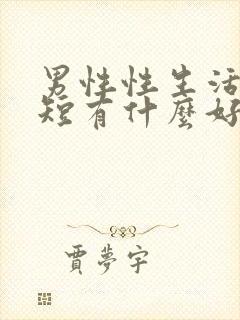 男性性生活
短有什麼好
賈夢宇